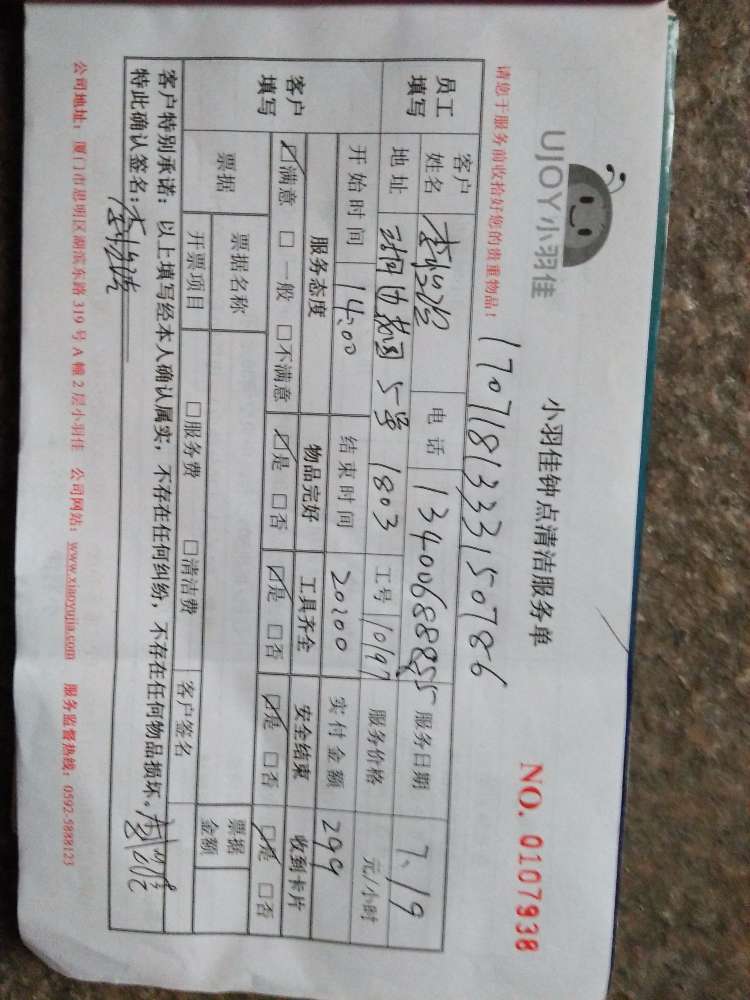 UJOY小羽佳
小羽佳钟点清洁服务单
NO. 0107938
请您于服务前收拾好您的贵重物品!
17071813331 50786
员工填写 客户姓名 电话 13400688855 服务日期 7.19
地址 5号 1803 工号 10197 服务价格 元/小时
开始时间 14:00 结束时间 20:00 实付金额 299
客户填写 服务态度 物品完好 工具齐全 安全结束 收到卡片
☑满意 □一般 □不满意 ☑是 □否 ☑是 □否 ☑是 □否 ☑是 □否
票据 票据名称 票据金额
开票项目 □服务费 □清洁费 客户签名
客户特别承诺:以上填写经本人确认属实,不存在任何纠纷,不存在任何物品损坏。
特此确认签名:
公司地址:厦门市思明区湖滨东路 319 号 A 幢 2 层小羽佳 公司网站:www.xiaoyujia.com 服务监督热线:0592-5888123